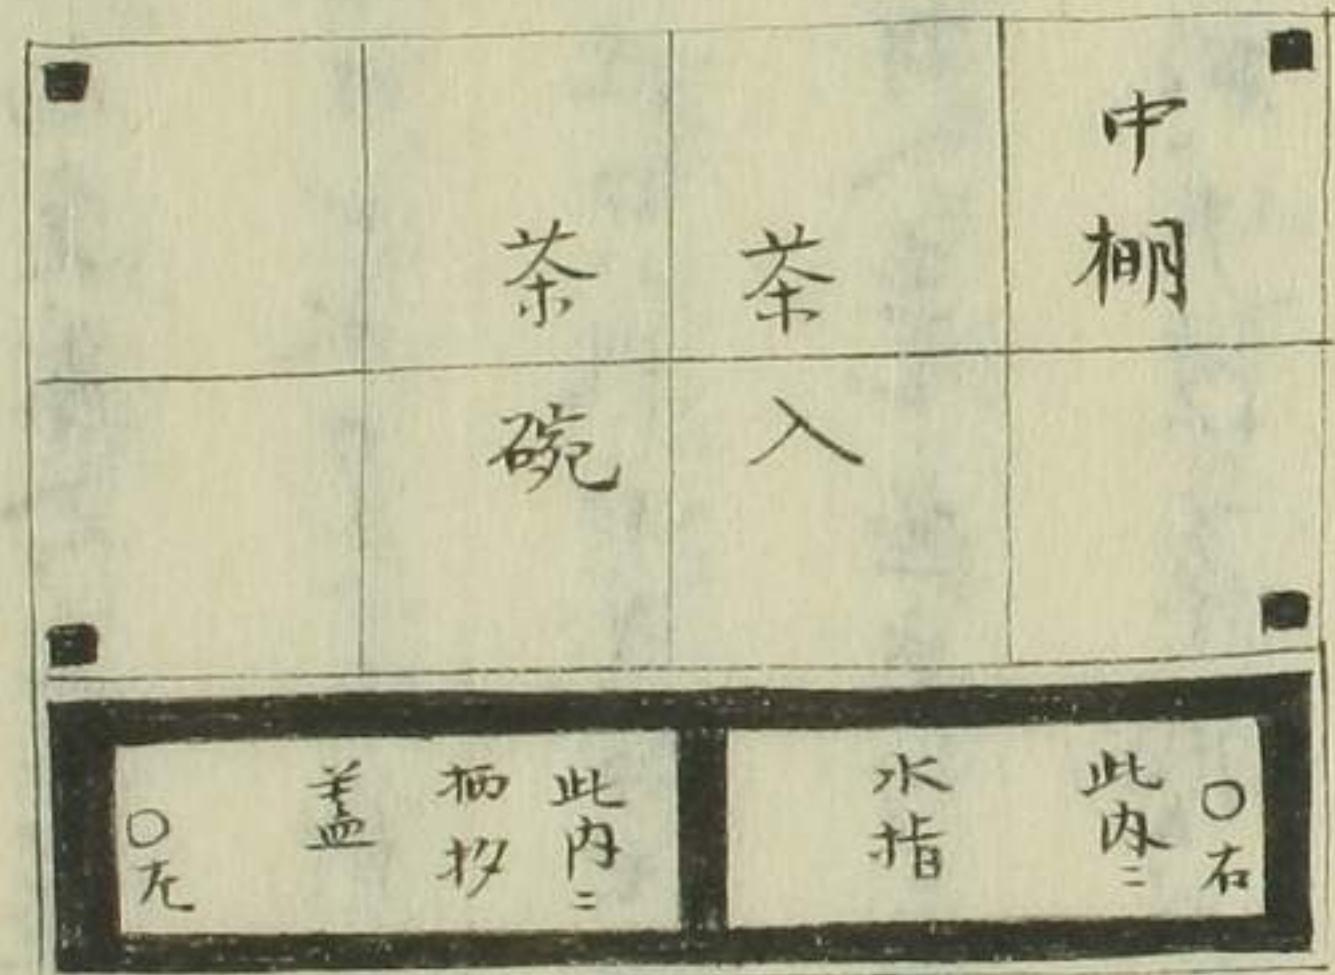 中棚
茶入
茶碗
○右
此内ニ
水指
此内ニ
柄杓
蓋
○左